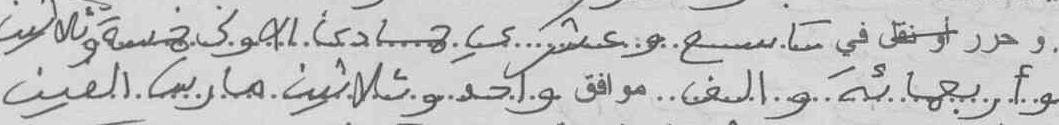 و حرر او نقل في تاسع و عشري جمادى الاولى خمسة وثلاثين
و أربعمائة و الف موافق واحد و ثلاثين مارس الفين